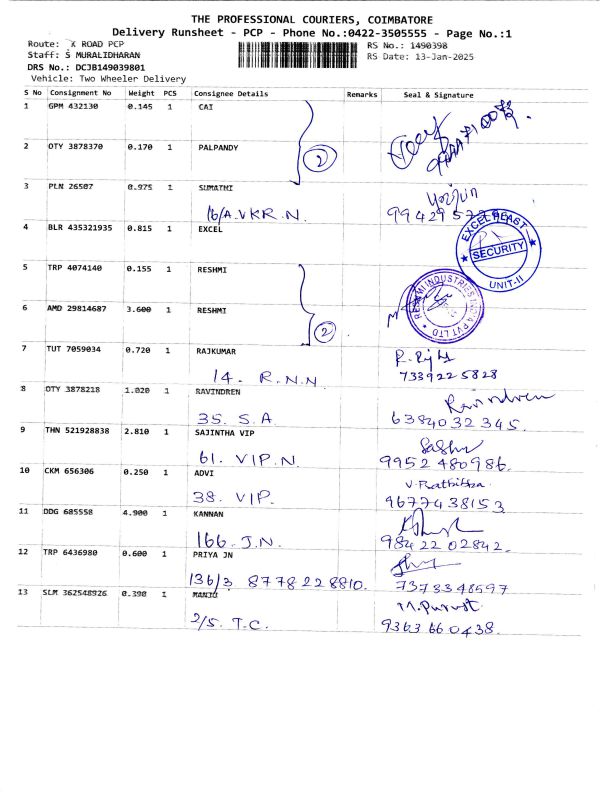 THE PROFESSIONAL COURIERS, COIMBATORE
Delivery Runsheet - PCP - Phone No.:0422-3505555 - Page No.:1
Route: X ROAD PCP
RS No.: 1490398
Staff: S MURALIDHARAN
RS Date: 13-Jan-2025
DRS No.: DCJB149039801
Vehicle: Two Wheeler Delivery
S No Consignment No Weight PCS Consignee Details Remarks Seal & Signature
1 GPM 432130 0.145 1 CAI
2 OTY 3878370 0.170 1 PALPANDY
2
3 PLN 26507 0.975 1 SUMATHI
16/A.VKR.N.
4 BLR 435321935 0.815 1 EXCEL
EXCEL REAST
SECURITY
UNIT-II
5 TRP 4074140 0.155 1 RESHMI
RESHMI INDUSTRIES INDIA PVT LTD
6 AMD 29814687 3.600 1 RESHMI
2
7 TUT 7059034 0.720 1 RAJKUMAR
14. R.N.N 7339225828
8 OTY 3878218 1.020 1 RAVINDREN Ravindren
35. S.A. 6384032345.
9 THN 521928838 2.810 1 SAJINTHA VIP
61. VIP.N. 9952480986.
10 CKM 656306 0.250 1 ADVI
38. VIP. 9677438153
11 DDG 685558 4.900 1 KANNAN
166. J.N. 9842202842.
12 TRP 6436980 0.600 1 PRIYA JN
136/3 8778228810. 7373348597
13 SLM 362548926 0.390 1 MANJU
2/5. T.C. 9363660438.